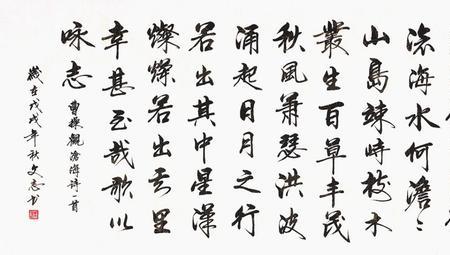 滄海水何澹〻
山島竦峙樹木
叢生百草丰茂
秋風蕭瑟洪波
涌起日月之行
若出其中星漢
燦爛若出其里
幸甚至哉歌以
咏志
曹操觀滄海詩一首
歲在戊戌年秋文志书